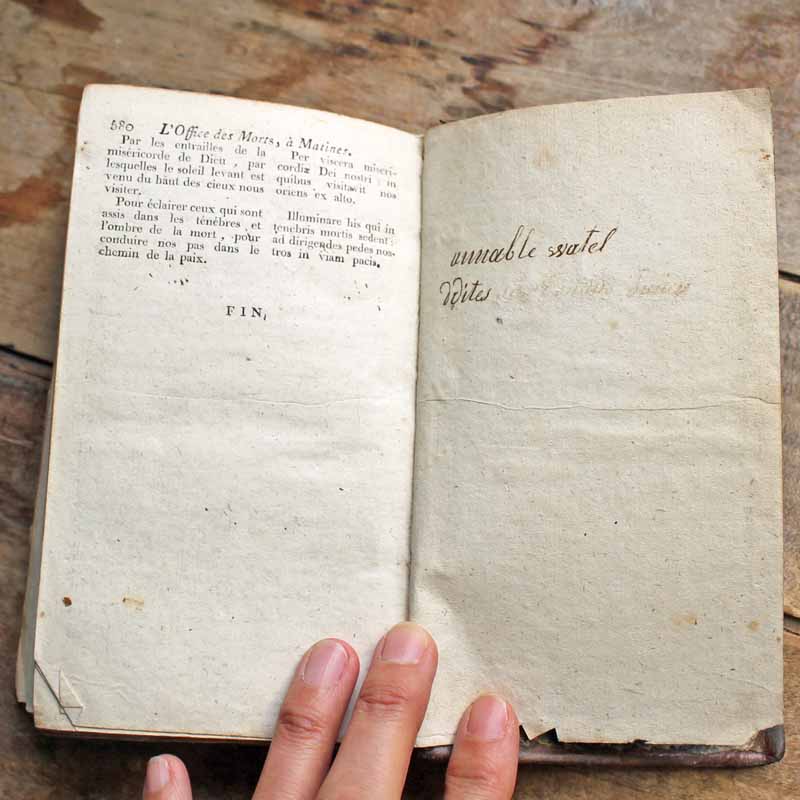 580 L'Office des Morts, à Matines.
Par les entrailles de la
miséricorde de Dieu, par
lesquelles le soleil levant est
venu du haut des cieux nous
visiter.
Pour éclairer ceux qui sont
assis dans les ténèbres et
l'ombre de la mort, pour
conduire nos pas dans le
chemin de la paix.
Per viscera miseri-
cordiæ Dei nostri: in
quibus visitavit nos
oriens ex alto.
Illuminare his qui in
tenebris mortis sedent:
ad dirigendos pedes nos-
tros in viam pacis.
FIN.
watel